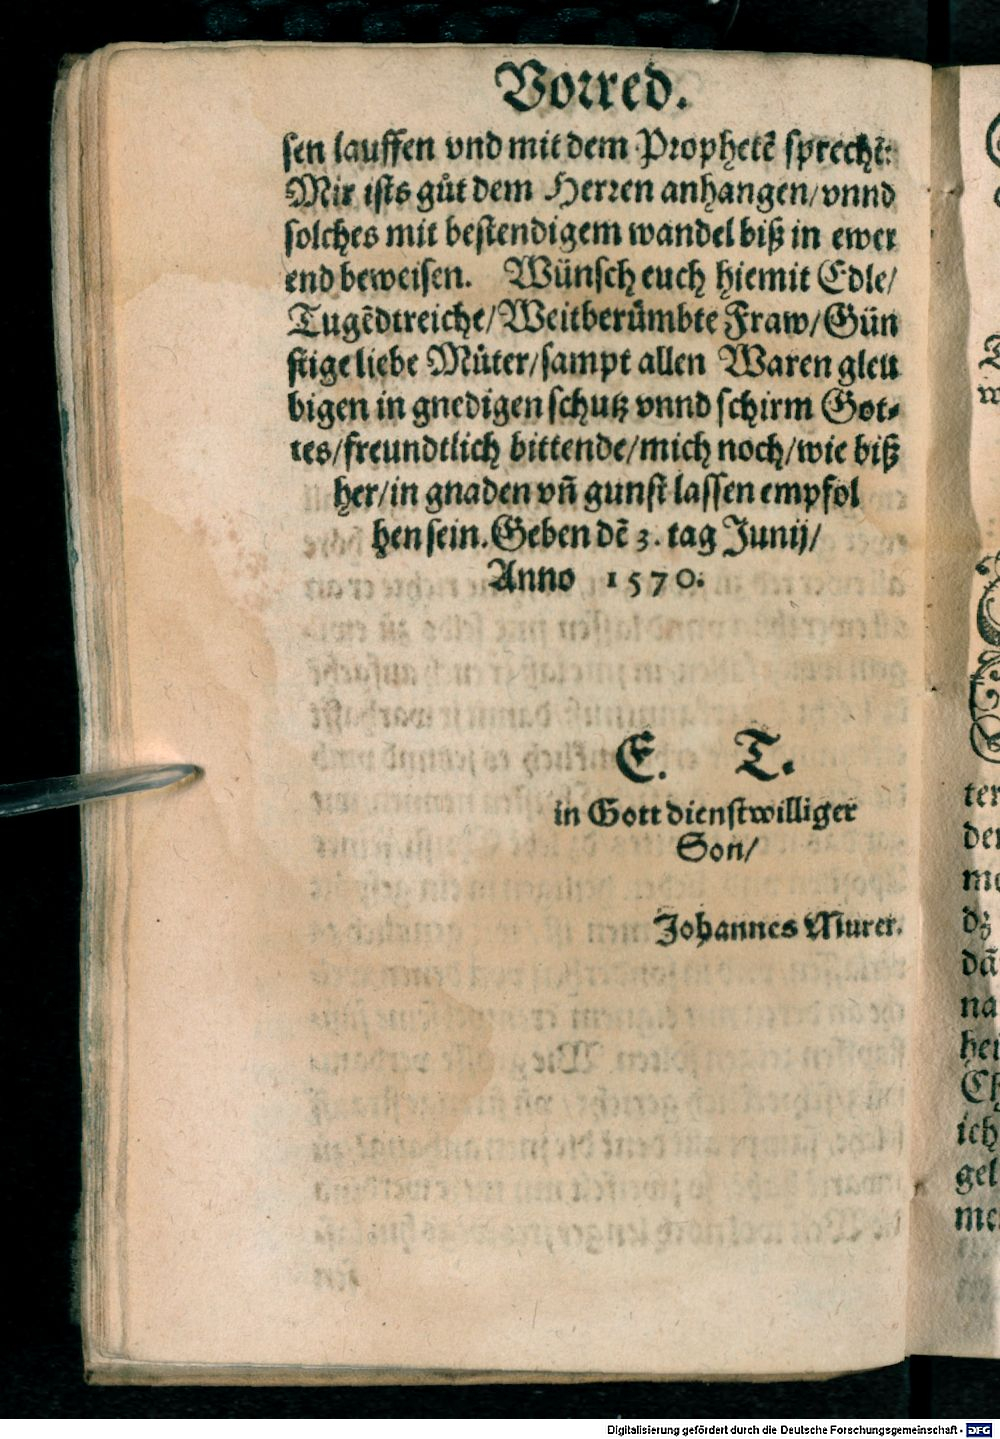 Vorred.
sen lauffen vnd mit dem Prophetẽ sprechẽ:
Mir ists gůt dem Herren anhangen/ vnnd
solches mit bestendigem wandel biß in ewer
end beweisen. Wünsch euch hiemit Edle/
Tugẽdtreiche/ Weitberůmbte Fraw/ Gün
stige liebe Můter/ sampt allen Waren gleu
bigen in gnedigen schutz vnnd schirm Got-
tes/ freundtlich bittende/ mich noch/ wie biß
her/ in gnaden vñ gunst lassen empfol
hen sein. Geben dẽ 3. tag Junij/
Anno 1570.
E. T.
in Gott dienstwilliger
Son/
Johannes Murer.
ter
der
dz
dã
na
hei
Ch
ich
gel
Digitalisierung gefördert durch die Deutsche Forschungsgemeinschaft - DFG